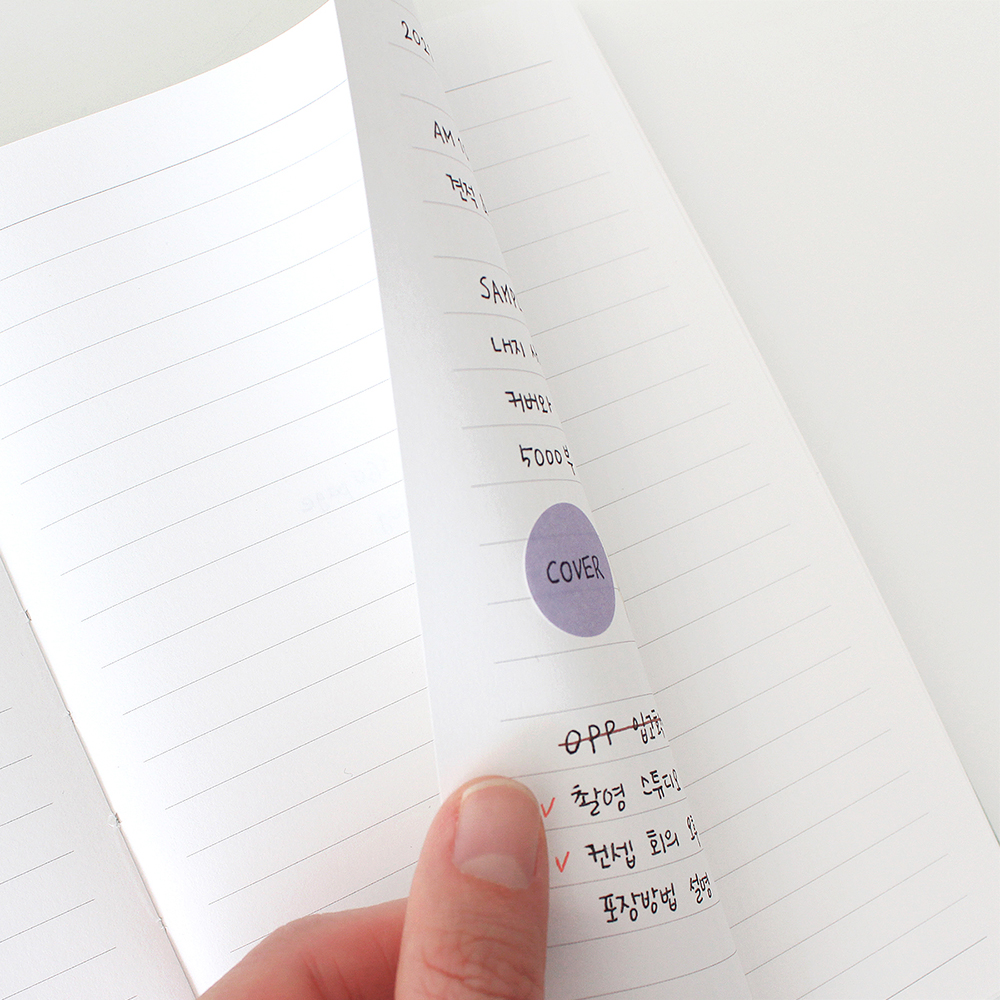 202
AM
견적
SAMPL
내지
커버와
5000부
COVER
OPP 입고
촬영 스튜디오
컨셉 회의
포장방법 설명